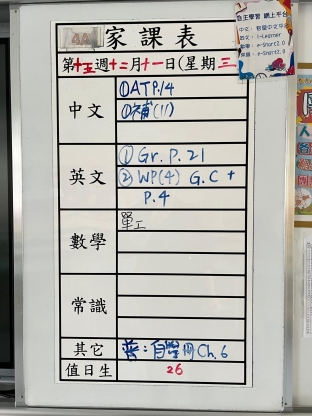 4A
家課表
第十五週十二月十一日(星期三
中文
①ATP.14
②補(11)
英文
① Gr. P. 21
② WP(4) G.C +
P.4
數學
單工
常識
其它
普:自學冊 Ch. 6
值日生
26
自主學習 網上平台
i-Learner
e-Smart2.0
e-Smart2.0